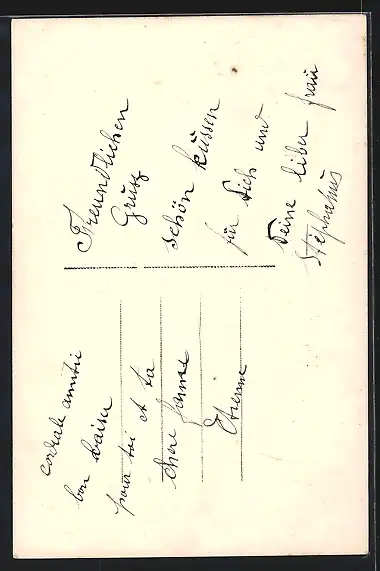 Freundlichen
Grusz
schön küssen
für Dich und
Deine liber frau
Stéphanus
cordiale amitié
bon baiser
pour toi et ta
chere femme
Etienne